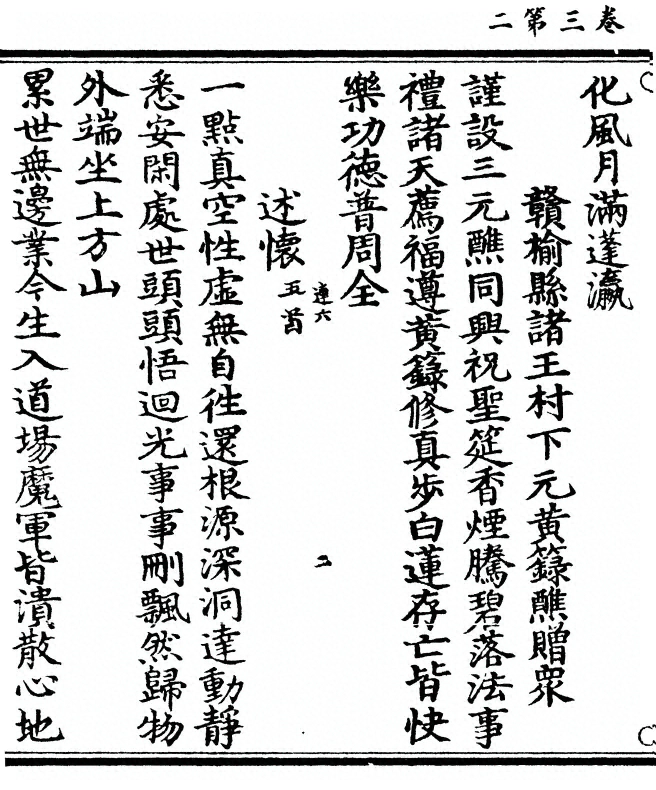 卷三第二
化風月滿蓬瀛
贛榆縣諸王村下元黃籙醮贈衆
謹設三元醮同興祝聖筵香煙騰碧落法事
禮諸天薦福遵黃籙修真步白蓮存亡皆快
樂功德普周全
述懷五首連六
一點真空性虛無自往還根源深洞達動靜
悉安閑處世頭頭悟迴光事事刪飄然歸物
外端坐上方山
累世無邊業今生入道場魔軍皆潰散心地